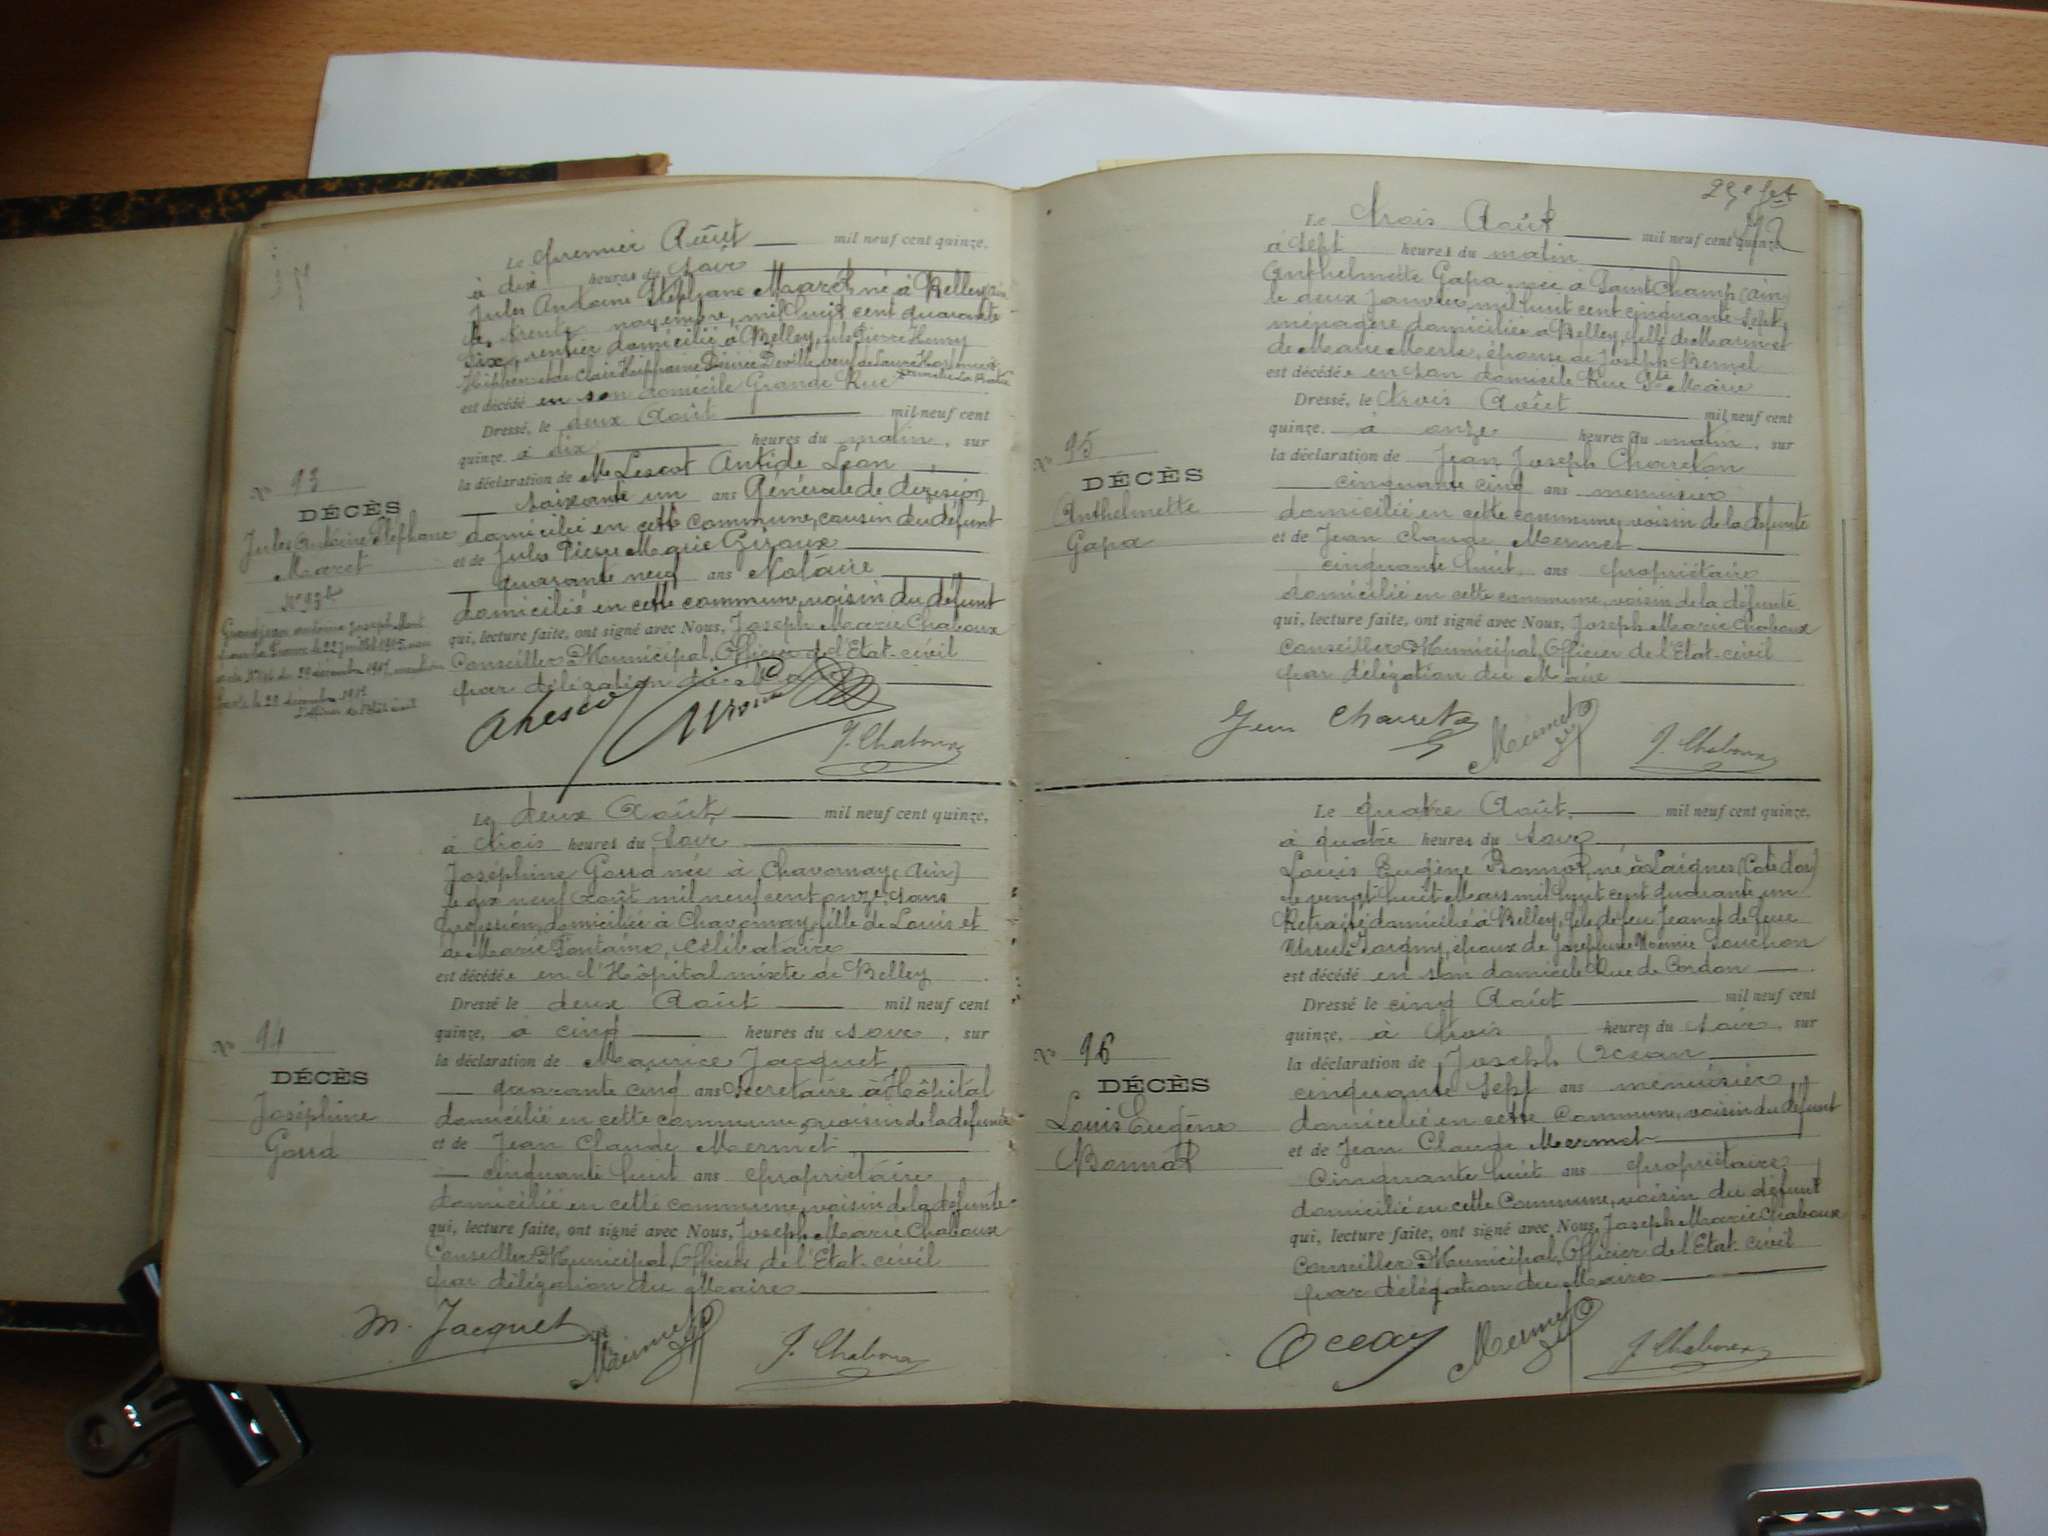 Le premier Août mil neuf cent quinze.
à dix heures du soir
Jules Antoine Stéphane Maret né à Belley (Ain
le trente novembre mil huit cent quarante
six, rentier domicilié à Belley, fils Pierre Henry
est décédé en son domicile Grande Rue
Dressé, le deux Août mil neuf cent
quinze à dix heures du matin, sur
la déclaration de Mr Lescot Antide Léon
soixante un ans Général de division
domicilié en cette commune, cousin du défunt
et de Jules Pierre Marie Giroux
quarante neuf ans Notaire
domicilié en cette commune, voisin du défunt
qui, lecture faite, ont signé avec Nous, Joseph Marie Chaboux
Conseiller Municipal, Officier de l'Etat-civil
par délégation du
J. Chaboux
No 93
DÉCÈS
Jules Antoine Stéphane
Maret
Le deux Août mil neuf cent quinze,
à trois heures du soir
Joséphine Goud née à Chavornay (Ain)
le dix neuf Août mil neuf cent onze, sans
profession, domiciliée à Chavornay, fille de Louis et
de Marie Fontaine, Célibataire
est décédée en l'Hôpital mixte de Belley
Dressé le deux Août mil neuf cent
quinze, à cinq heures du soir, sur
la déclaration de Maurice Jacquet
quarante cinq ans Secrétaire à l'Hôpital
domicilié en cette commune, voisin de la défunte
et de Jean Claude Mermet
cinquante huit ans propriétaire
domicilié en cette commune, voisin de la défunte
qui, lecture faite, ont signé avec Nous, Joseph Marie Chaboux
Conseiller Municipal, Officier de l'Etat-civil
par délégation du Maire
M. Jacquet Mermet J. Chaboux
No 94
DÉCÈS
Joséphine
Goud
Le trois Août mil neuf cent quinze
à sept heures du matin
Anthelmette Gapa, née à Saint Champ (Ain)
le deux Janvier mil huit cent cinquante sept,
ménagère domiciliée à Belley, fille de Marin et
de Marie Merle, épouse de Joseph
est décédée en son domicile Rue Ste Marie
Dressé, le trois Août mil neuf cent
quinze. à onze heures du matin, sur
la déclaration de Jean Joseph Charreton
cinquante cinq ans menuisier
domicilié en cette commune, voisin de la défunte
et de Jean Claude Mermet
cinquante huit ans propriétaire
domicilié en cette commune, voisin de la défunte
qui, lecture faite, ont signé avec Nous, Joseph Marie Chaboux
Conseiller Municipal, Officier de l'Etat-civil
par délégation du Maire
Mermet J. Chaboux
No 95
DÉCÈS
Anthelmette
Gapa
Le quatre Août mil neuf cent quinze,
à quatre heures du soir
Louis Eugène Bonnot, né à Laignes (Côte d'or)
le vingt huit Mars mil huit cent quarante un
Retraité domicilié à Belley, fils de feu Jean et de feue
Ursule, époux de Joséphine Noémie Souchon
est décédé en son domicile Rue de Cordon
Dressé le cinq Août mil neuf cent
quinze, à trois heures du soir, sur
la déclaration de Joseph Occan
cinquante sept ans menuisier
domicilié en cette Commune, voisin du défunt
et de Jean Claude Mermet
Cinquante huit ans propriétaire
domicilié en cette Commune, voisin du défunt
qui, lecture faite, ont signé avec Nous, Joseph Marie Chaboux
Conseiller Municipal, Officier de l'Etat-civil
par délégation du Maire
Mermet J. Chaboux
No 96
DÉCÈS
Louis Eugène
Bonnot